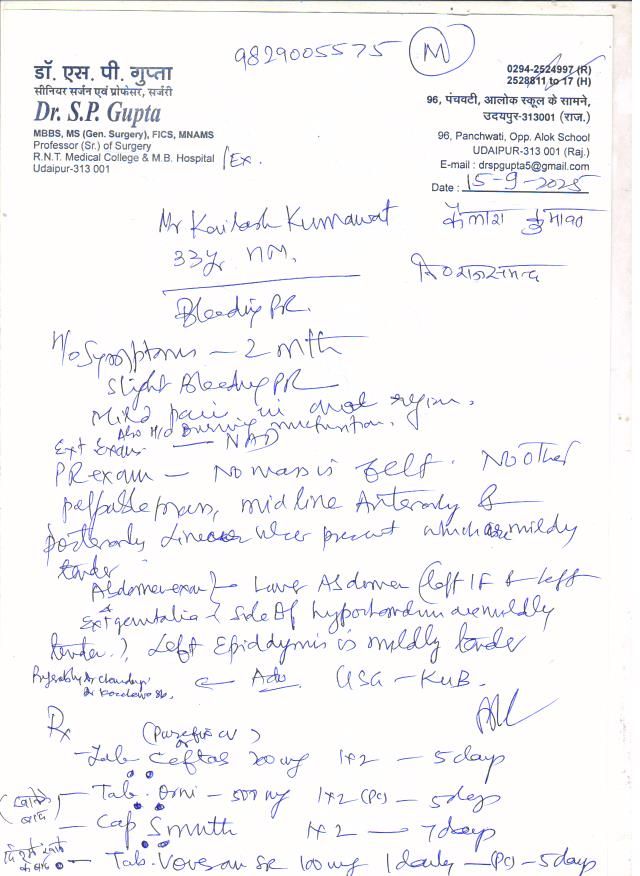 9829005575 M
डॉ. एस. पी. गुप्ता
सीनियर सर्जन एवं प्रोफेसर, सर्जरी
Dr. S.P. Gupta
MBBS, MS (Gen. Surgery), FICS, MNAMS
Professor (Sr.) of Surgery
R.N.T. Medical College & M.B. Hospital
Udaipur-313 001
/Ex.
0294-2524997 (R)
2528811 to 17 (H)
96, पंचवटी, आलोक स्कूल के सामने,
उदयपुर-313001 (राज.)
96, Panchwati, Opp. Alok School
UDAIPUR-313 001 (Raj.)
E-mail : drspgupta5@gmail.com
Date : 15-9-2025
Mr Kailash Kumawat
33yr
कैलाश
Bleeding PR.
H/o Symptoms — 2 mth
Slight Bleeding PR
Mild pain in anal region.
Also H/o Burning micturition.
Ext Exam — NAD
PR exam — No mass is felt. No other
palpable mass, midline Anteriorly &
posteriorly linear ulcer present which are mildly
tender
Abdomen exam — Lower Abdomen (left IF & left
& Ext genitalia side of hypochondrium are mildly
tender.) Left Epididymis is mildly tender
Adv USG - KUB.
Rx
Tab Ceftas 200 mg 1x2 — 5 days
Tab. Orni — 500 mg 1x2 (PC) — 5 days
Cap Smuth 1x2 — 7 days
Tab. Voveran SR 100 mg 1 daily — (PC) — 5 days